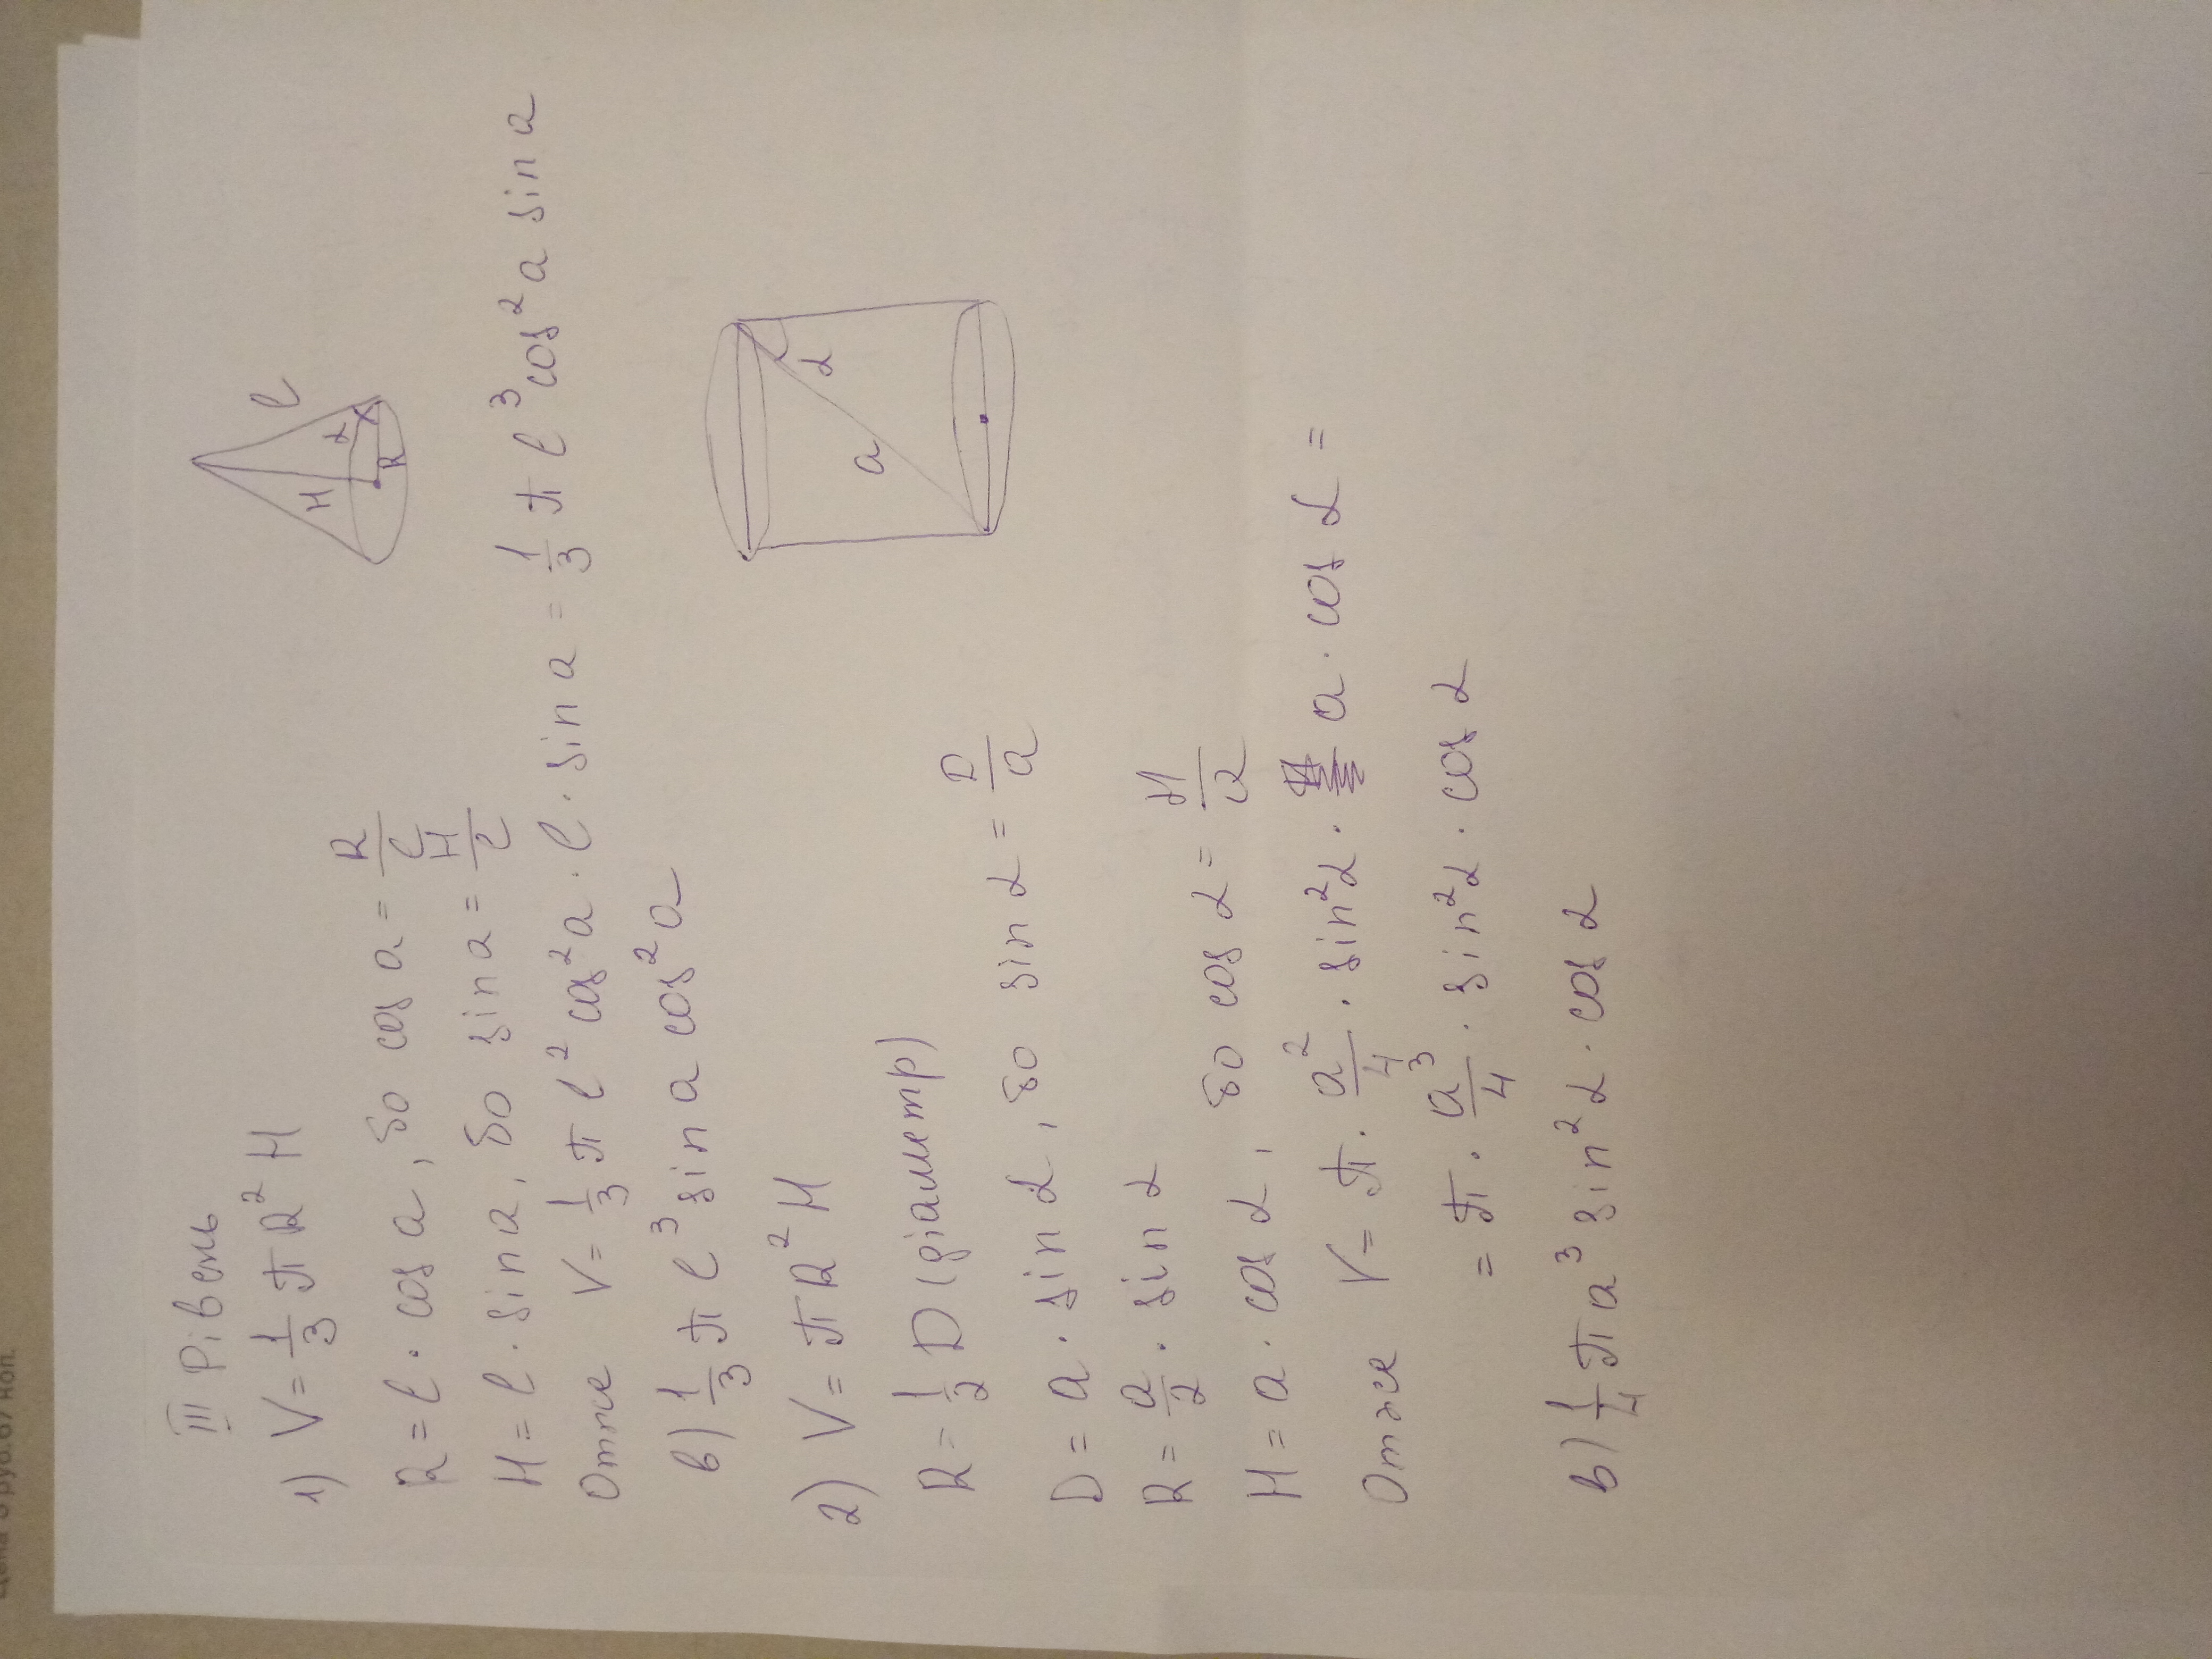 III Рівень
1) V = 1/3 π R² H
R = l · cos a, бо cos a = R/l
H = l · sin a, бо sin a = H/l
Отже V = 1/3 π l² cos² a · l · sin a = 1/3 π l³ cos² a sin a
в) 1/3 π l³ sin a cos² a
H
α
R
l
2) V = π R² H
R = 1/2 D (діаметр)
D = a · sin α, бо sin α = D/a
R = a/2 · sin α
H = a · cos α, бо cos α = H/a
Отже V = π · a²/4 · sin² α · a · cos α =
= π · a³/4 · sin² α · cos α
в) 1/4 π a³ sin² α · cos α
a
α